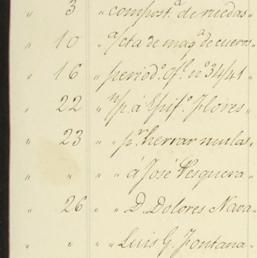 " 3 " compost.ª de ruedas
" 10 " á cta de maq.ª de cueros
" 16 " period.º Of.l nº 34/41
" 22 " á Epif.º Flores
" 23 " p.r herrar mulas
" " " á José Pesquera
" 26 " D. Dolores Nava
" " " Luis G. Fontana